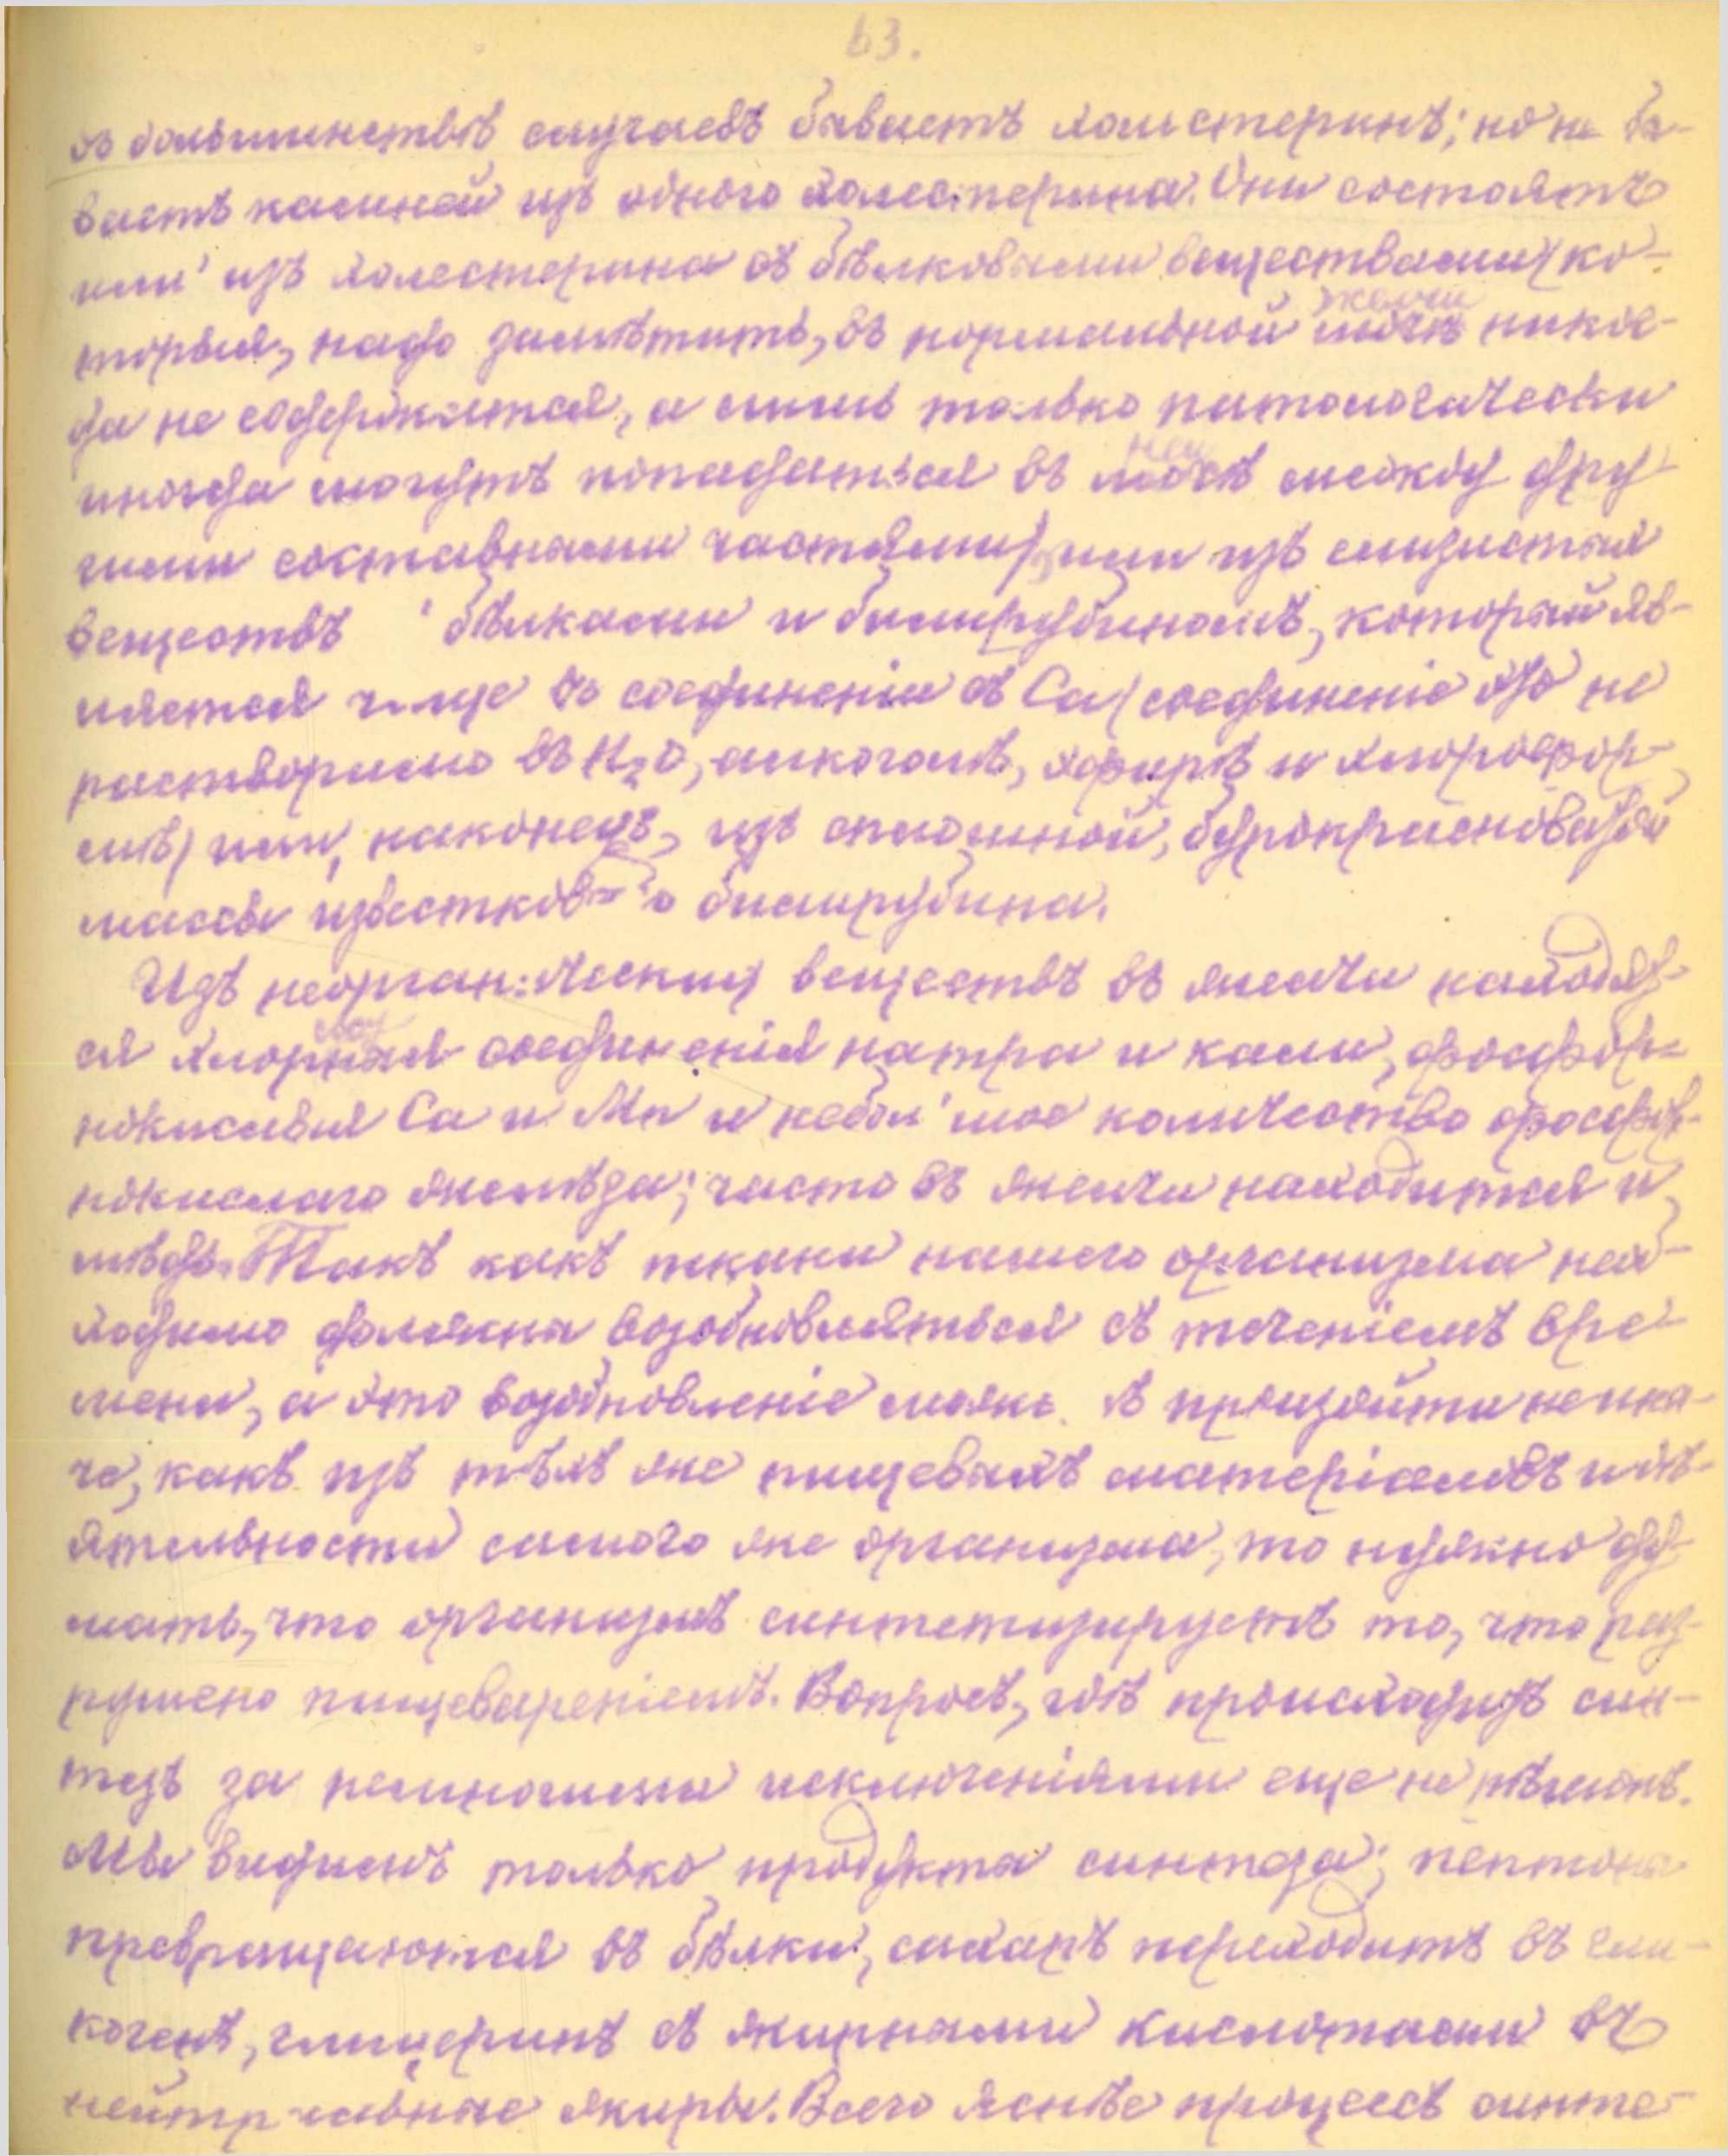 63.
въ большинствѣ случаевъ бываетъ холестеринъ; но не бы-
ваетъ камней изъ одного холестерина. Они состоятъ
или изъ холестерина съ бѣлковыми веществами (ко-
торыя, надо замѣтить, въ нормальной желчи никог-
да не содержатся, а лишь только патологически
иногда могутъ попадаться въ ней между дру-
гими составными частями), или изъ слизистыхъ
веществъ с бѣлками и билирубиномъ, который яв-
ляется чаще въ соединеніи съ Ca (соединеніе это не
растворимо въ H₂O, алкоголѣ, эфирѣ и хлорофор-
мѣ) или, наконецъ, изъ сплошной, бурокрасноватой
массы известковаго билирубина.
Изъ неорганическихъ веществъ въ желчи находят-
ся хлорныя соединенія натра и кали, фосфор-
нокислыя Ca и Mn и небольшое количество фосфор-
нокислаго желѣза; часто въ желчи находится и
мѣдь. Такъ какъ ткани нашего организма необ-
ходимо должны возобновляться съ теченіемъ вре-
мени, а это возобновленіе можетъ произойти не ина-
че, какъ изъ тѣхъ же пищевыхъ матеріаловъ и дѣ-
ятельности самого же организма, то нужно ду-
мать, что организмъ синтетизируетъ то, что раз-
рушено пищевареніемъ. Вопросъ, гдѣ происходитъ син-
тезъ за немногими исключеніями еще не рѣшенъ.
Мы видимъ только продукты синтеза; пептоны
превращаются въ бѣлки, сахаръ переходитъ въ гли-
когенъ, глицеринъ съ жирными кислотами въ
нейтральные жиры. Всего яснѣе процессъ синте-